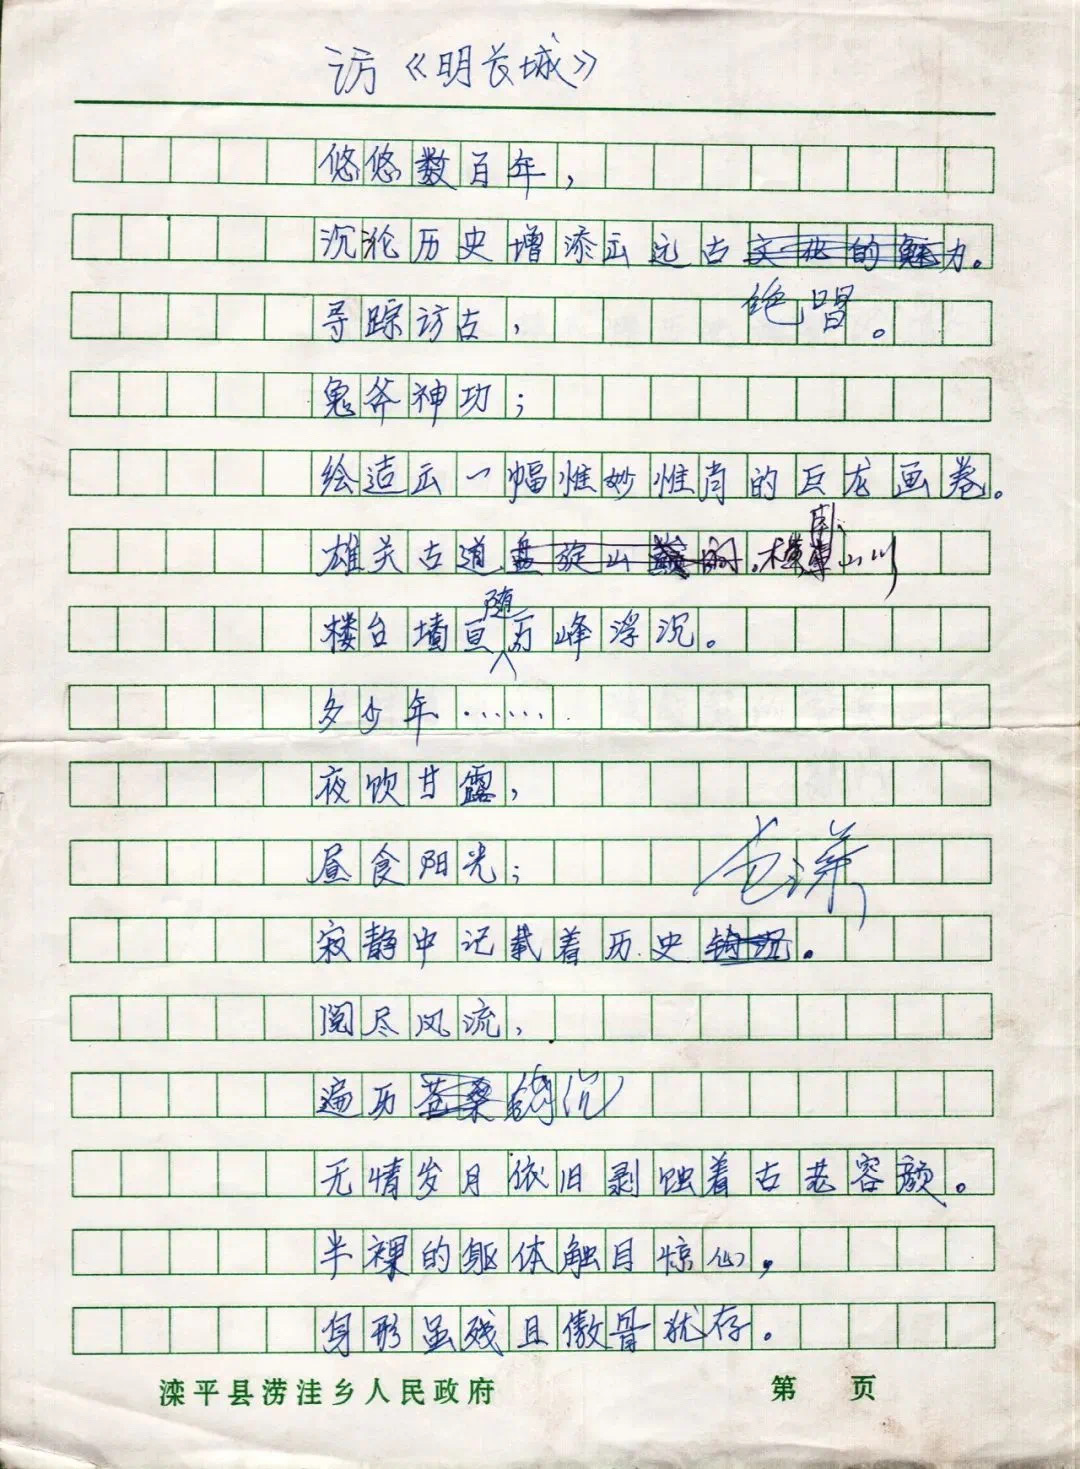 访《明长城》
悠悠数百年，
沉沦历史增添出远古文化的魅力。
绝唱。
寻踪访古，
鬼斧神功；
绘造出一幅惟妙惟肖的巨龙画卷。
雄关古道盘旋山的.横卧山川
楼台墙亘随万峰浮沉。
多少年……
夜饮甘露，
昼食阳光；
苍莽
寂静中记载着历史钩沉。
阅尽风流，
遍历苍桑钩沉
无情岁月依旧剥蚀着古老容颜。
半裸的躯体触目惊心，
身形虽残且傲骨犹存。
滦平县涝洼乡人民政府 第 页